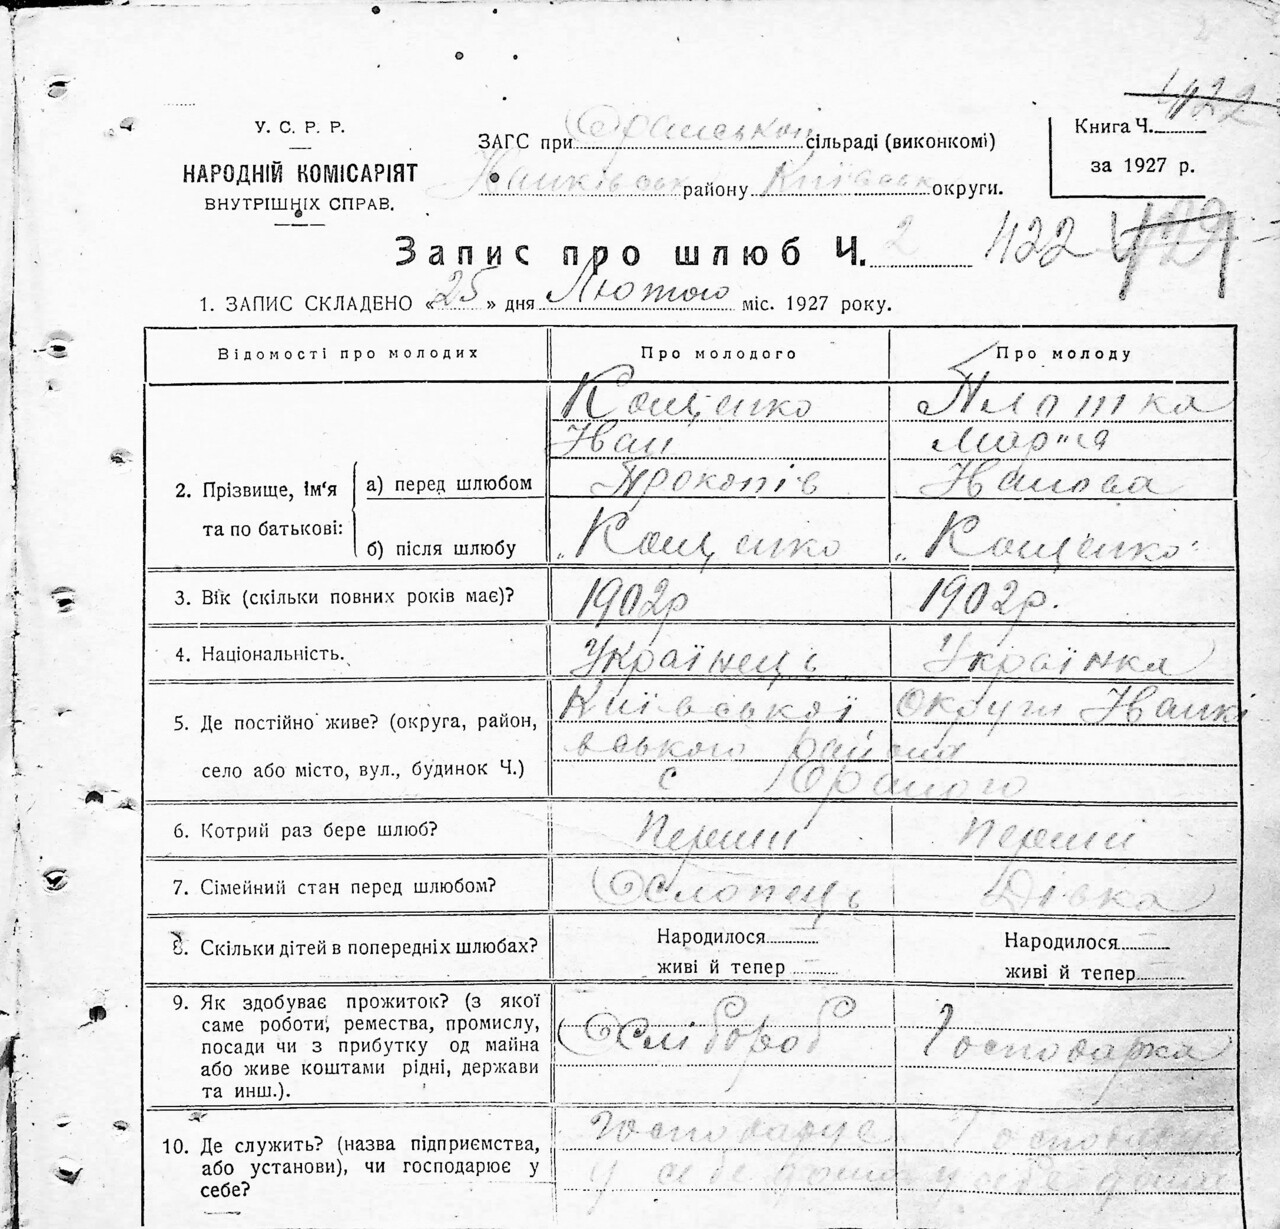 У. С. Р. Р.
НАРОДНІЙ КОМІСАРІЯТ
ВНУТРІШНІХ СПРАВ.
ЗАГС при сільраді (виконкомі)
району Київськ округи.
Книга Ч. 422
за 1927 р.
Запис про шлюб Ч. 2 422
1. ЗАПИС СКЛАДЕНО «25» дня Лютого міс. 1927 року.
Відомості про молодих Про молодого Про молоду
Кощенко
Іван Марія
2. Прізвище, ім'я а) перед шлюбом Прокопів Іванова
та по батькові: б) після шлюбу „Кощенко „Кощенко
3. Вік (скільки повних років має)? 1902р 1902р.
4. Національність. Українець Українка
5. Де постійно живе? (округа, район, Київської округи Іванкі
вського района
село або місто, вул., будинок Ч.) с Ораного
6. Котрий раз бере шлюб? Перший Перший
7. Сімейний стан перед шлюбом? Дівка
8. Скільки дітей в попередніх шлюбах? Народилося Народилося
живі й тепер живі й тепер
9. Як здобуває прожиток? (з якої
саме роботи, ремества, промислу,
посади чи з прибутку од майна Господарка
або живе коштами рідні, держави
та инш.).
10. Де служить? (назва підприємства, Господарує Господарує
або установи), чи господарює у у себе дома у себе дома
себе?